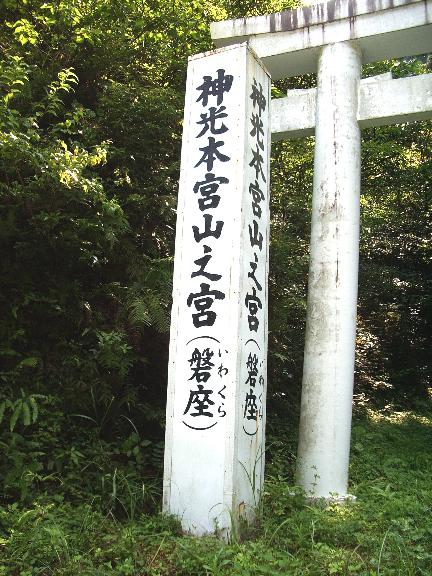 神光本宮山之宮(磐座)
いわくら
神光本宮山之宮(磐座)
いわくら